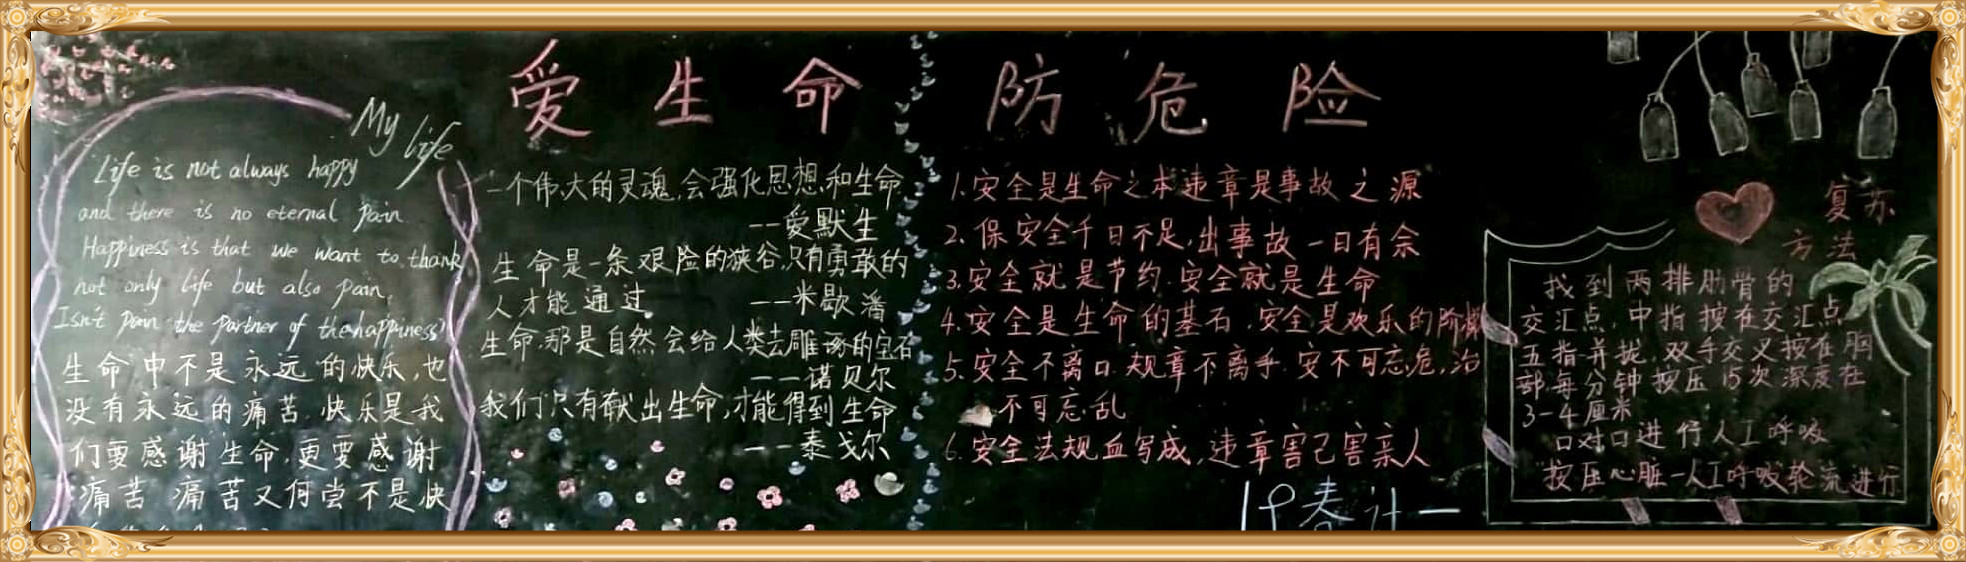 爱生命 防危险
My life
Life is not always happy
and there is no eternal pain
Happiness is that we want to thank
not only life but also pain,
Isn't pain the partner of the happiness?
生命中不是永远的快乐,也
没有永远的痛苦.快乐是我
们要感谢生命,更要感谢
痛苦 痛苦又何尝不是快
一个伟大的灵魂,会强化思想和生命
--爱默生
生命是一条艰险的狭谷,只有勇敢的
人才能通过。 --米歇潘
生命,那是自然会给人类去雕琢的宝石
--诺贝尔
我们只有献出生命,才能得到生命
--泰戈尔
1.安全是生命之本违章是事故之源
2.保安全千日不足,出事故一日有余
3.安全就是节约.安全就是生命
4.安全是生命的基石,安全是欢乐的阶梯
5.安全不离口.规章不离手.安不可忘危,治
不可忘乱
6.安全法规血写成,违章害己害亲人
复苏
方法
找到两排肋骨的
交汇点,中指按在交汇点
五指并拢,双手交叉按在胸
部.每分钟按压15次深度在
3-4厘米
口对口进行人工呼吸
按压心脏-人工呼吸轮流进行